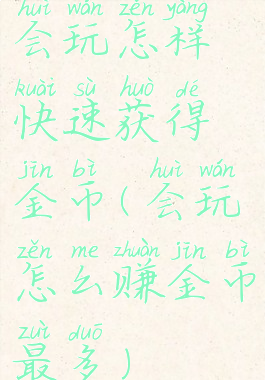 huì wán zěn yàng
会玩怎样
kuài sù huò dé
快速获得
jīn bì huì wán
金币(会玩
zěn me zhuàn jīn bì
怎么赚金币
zuì duō
最多)